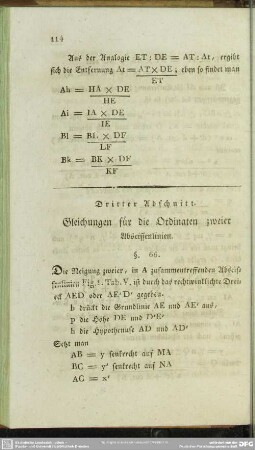 114
Aus der Analogie ET : DE = AT : At, ergibt
sich die Entfernung At = AT × DE ; eben so findet man
ET
Ah = HA × DE
HE
Ai = IA × DE
IE
Bl = BL × DF
LF
Bk = BK × DF
KF
Dritter Abschnitt.
Gleichungen für die Ordinaten zweier
Abscissenlinien.
§. 66.
Die Neigung zweier, in A zusammentreffenden Abscis-
senlinien Fig. 1. Tab. V. ist durch das rechtwinklichte Drei-
eck AED oder AE'D' gegeben.
b drückt die Grundlinie AE und AE' aus.
p die Höhe DE und D'E'
h die Hypothenuse AD und AD'
Setzt man
AB = y senkrecht auf MA
BC = y' senkrecht auf NA
AC = x'